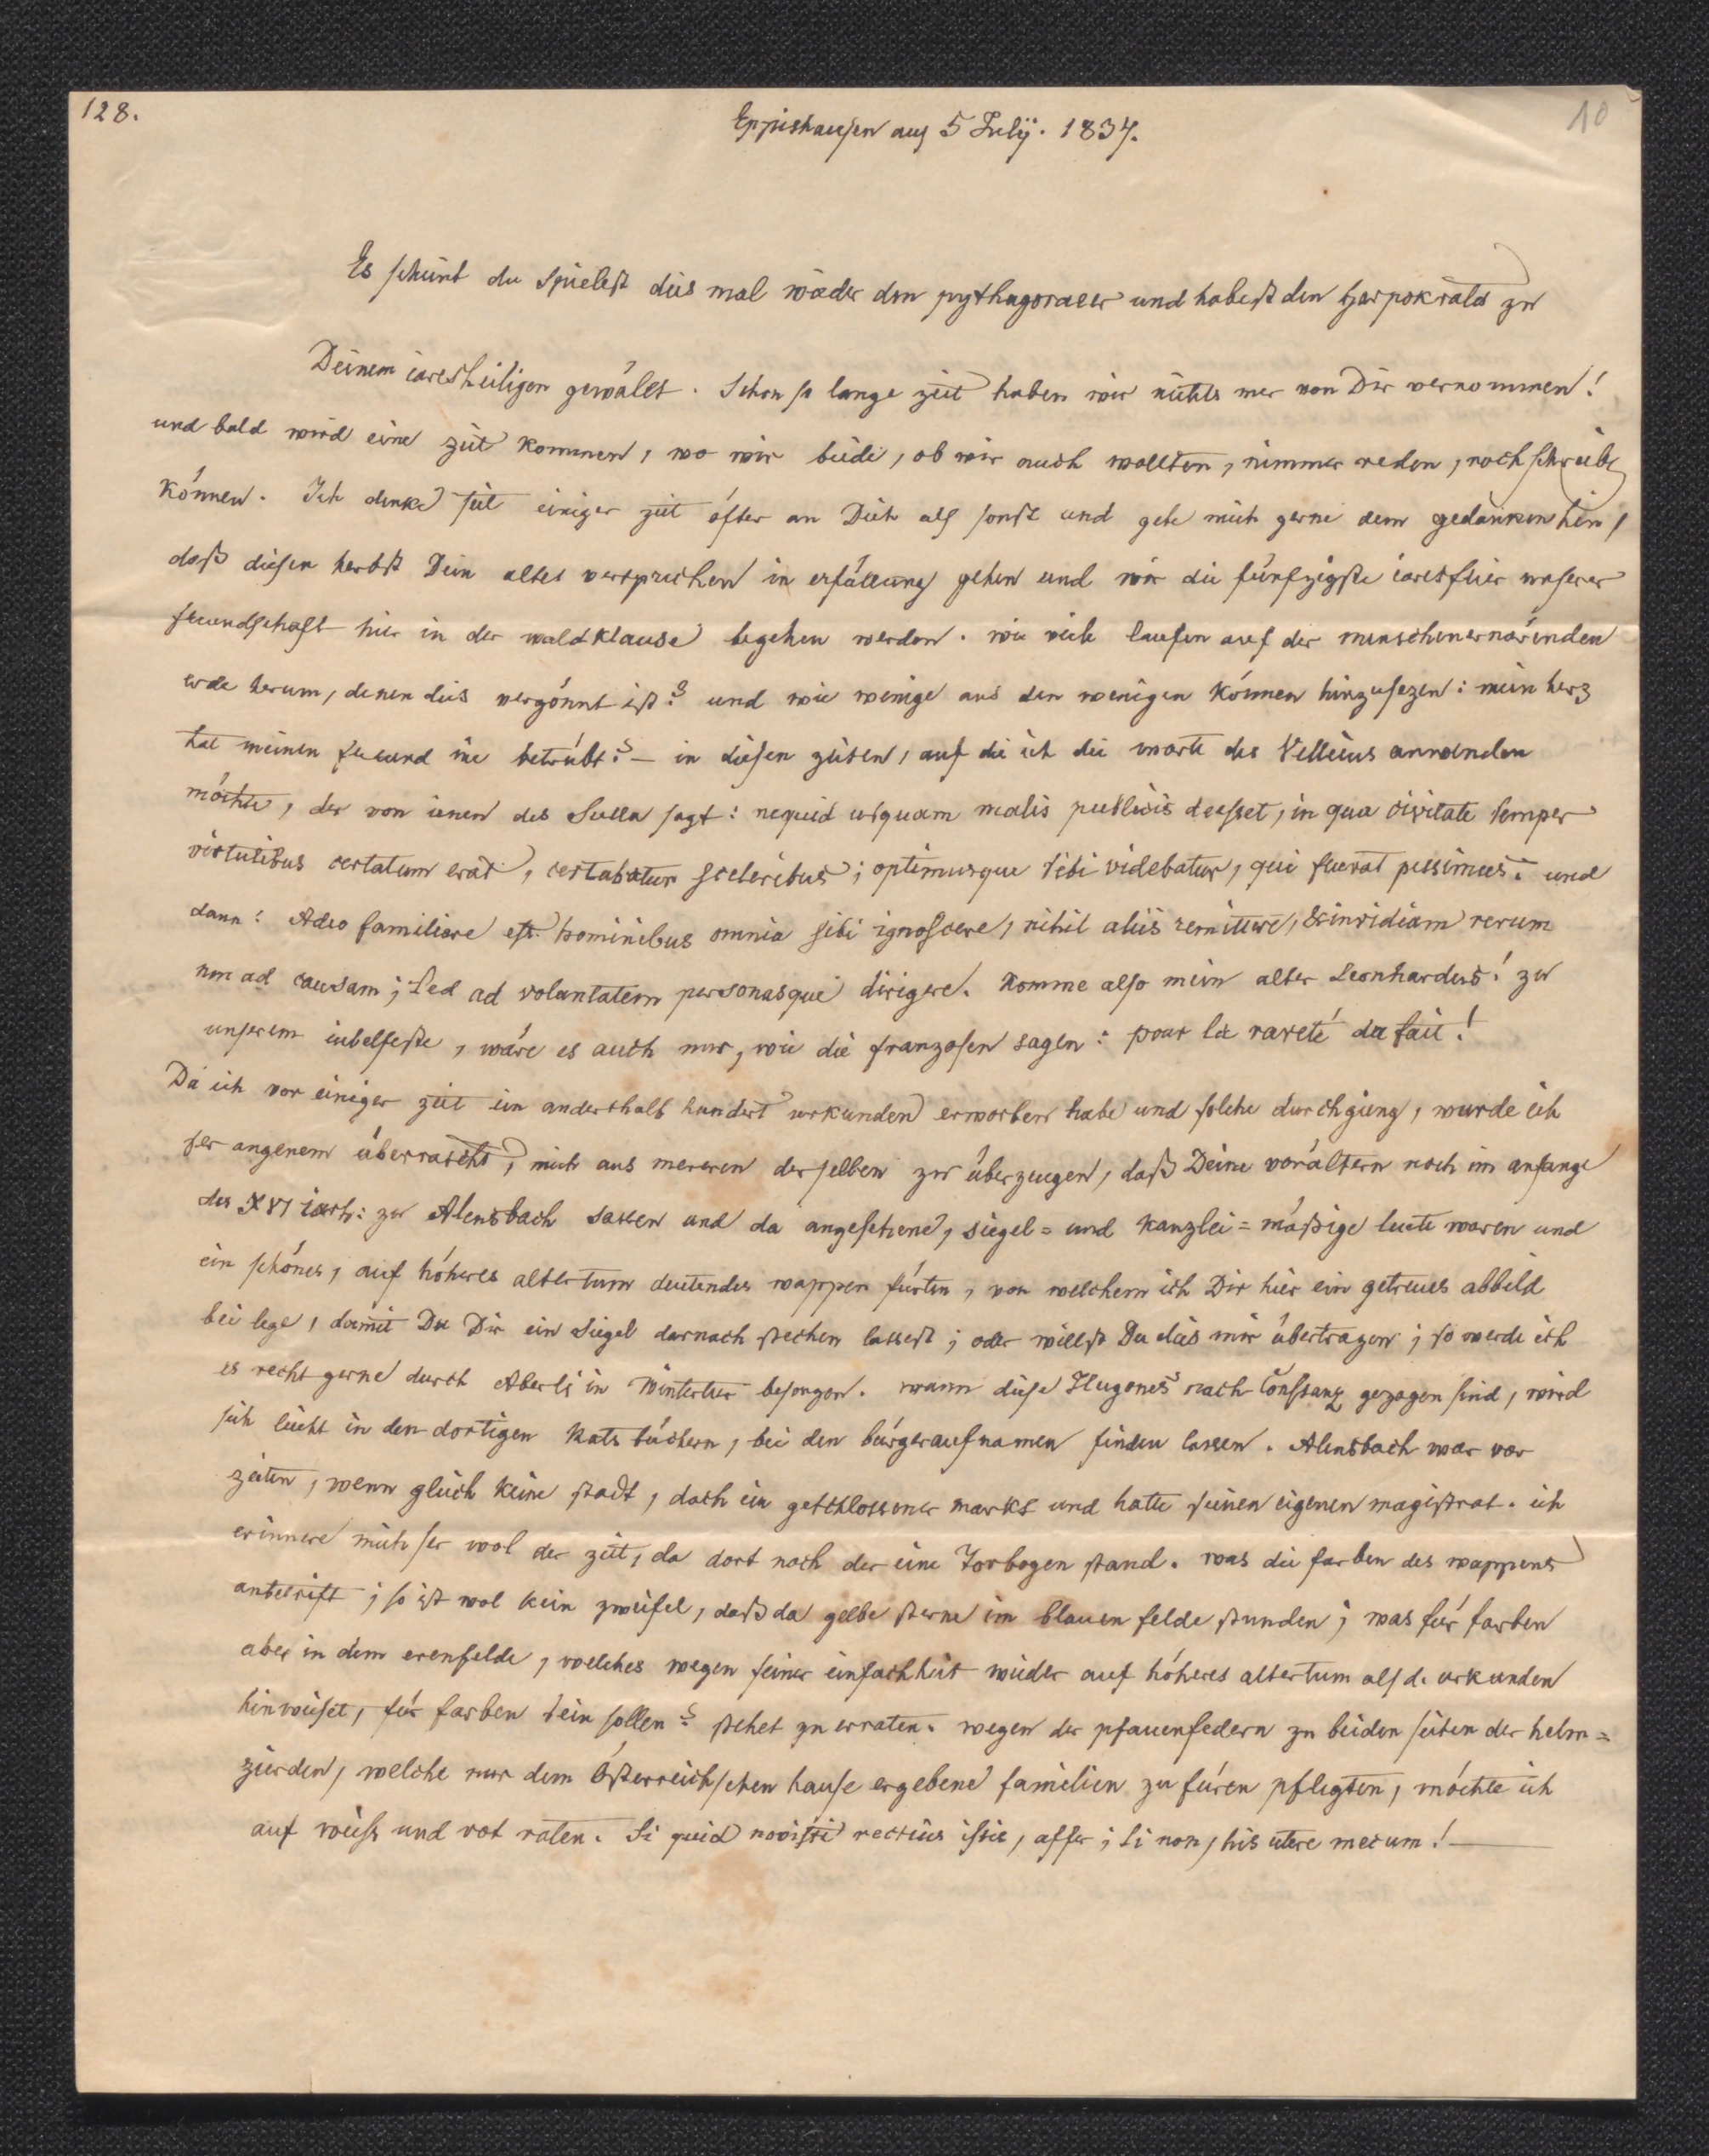 128.
10
Eppishausen aus 5 Julÿ. 1837.
Es scheint du spielest dies mal wieder den pythagoraeer und habest den Harpokrates zu
Deinem iaresheiligen gewält. Schon so lange zeit haben wir nichts mer von Dir vernommen!
und bald wird eine zeit kommen, wo wir beide, ob wir auch wollten, nimmer reden, noch schreiben
können. Ich denke seit einiger zeit öfter an Dich als sonst und gebe mich gerne dem gedanken hin,
daß diesen herbst Dein altes versprechen in erfüllung gehen und wir die fünfzigste iaresfeier unserer
freundschaft hier in der waldklause begehen werden. wie viele laufen auf der menschenernärenden
erde herum, denen dies vergönnt ist? und wie wenige aus den wenigen können hinzusezen: mein herz
hat meinen freund nie betrübt? – in diesen zeiten, auf die ich die worte des Velleius anwenden
möchte, der von ienen des Sulla sagt: nequid usquam malis publicis deesset, in qua civitate semper
virtutibus certatum erat, certabatur sceleribus; optimusque sibi videbatur, qui fuerat pessimus: und
dann: Adeo familiare est hominibus omnia sibi ignoscere, nihil aliis remittere, & invidiam rerum
non ad causam; sed ad voluntatem personasque dirigere. Komme also mein alter Leonhardus! zu
unserem iubelfeste, wäre es auch nur, wie die franzosen sagen: pour la rareté du fait!
Da ich vor einiger zeit ein anderthalb hundert urkunden erworben habe und solche durchgieng, wurde ich
ser angenem überrascht, mich aus mereren derselben zu überzeugen, daß Deine vorältern noch im anfange
des XVI iarh: zu Alensbach sassen und da angesehene, siegel= und kanzlei=mäßige leute waren und
ein schönes, auf höheres altertum deutendes wappen fürten, von welchem ich Dir hier ein getreues abbild
bei lege, damit Du Dir ein Siegel darnach stechen lassest; oder willst Du dies mir übertragen; so werde ich
es recht gerne durch Aberli in Wintertur besorgen. wann diese Hugones nach Constanz gezogen sind, wird
sich leicht in den dortigen Rats büchern, bei den bürgeraufnamen finden lassen. Alensbach war vor
zeiten, wenn gleich keine stadt, doch ein geschlossener markt und hatte seinen eigenen magistrat. ich
erinnere mich ser wol der zeit, da dort noch der eine Torbogen stand. was die farben des wappens
antelrift; so ist wol kein zweifel, daß da gelbe sterne im blauen felde stunden; was für farben
aber in dem erenfelde, welches wegen seiner einfachheit wieder auf höheres altertum als d. urkunden
hinweiset, für farben sein sollen? stehet zu erraten. wegen der pfauenfedern zu beiden seiten der helm=
zierden, welche nur dem Österreichschen hause ergebene familien zu füren pflegten, möchte ich
auf weiss und rot raten. Si quid novisti rectius istis, affer; si non, his utere mecum! —